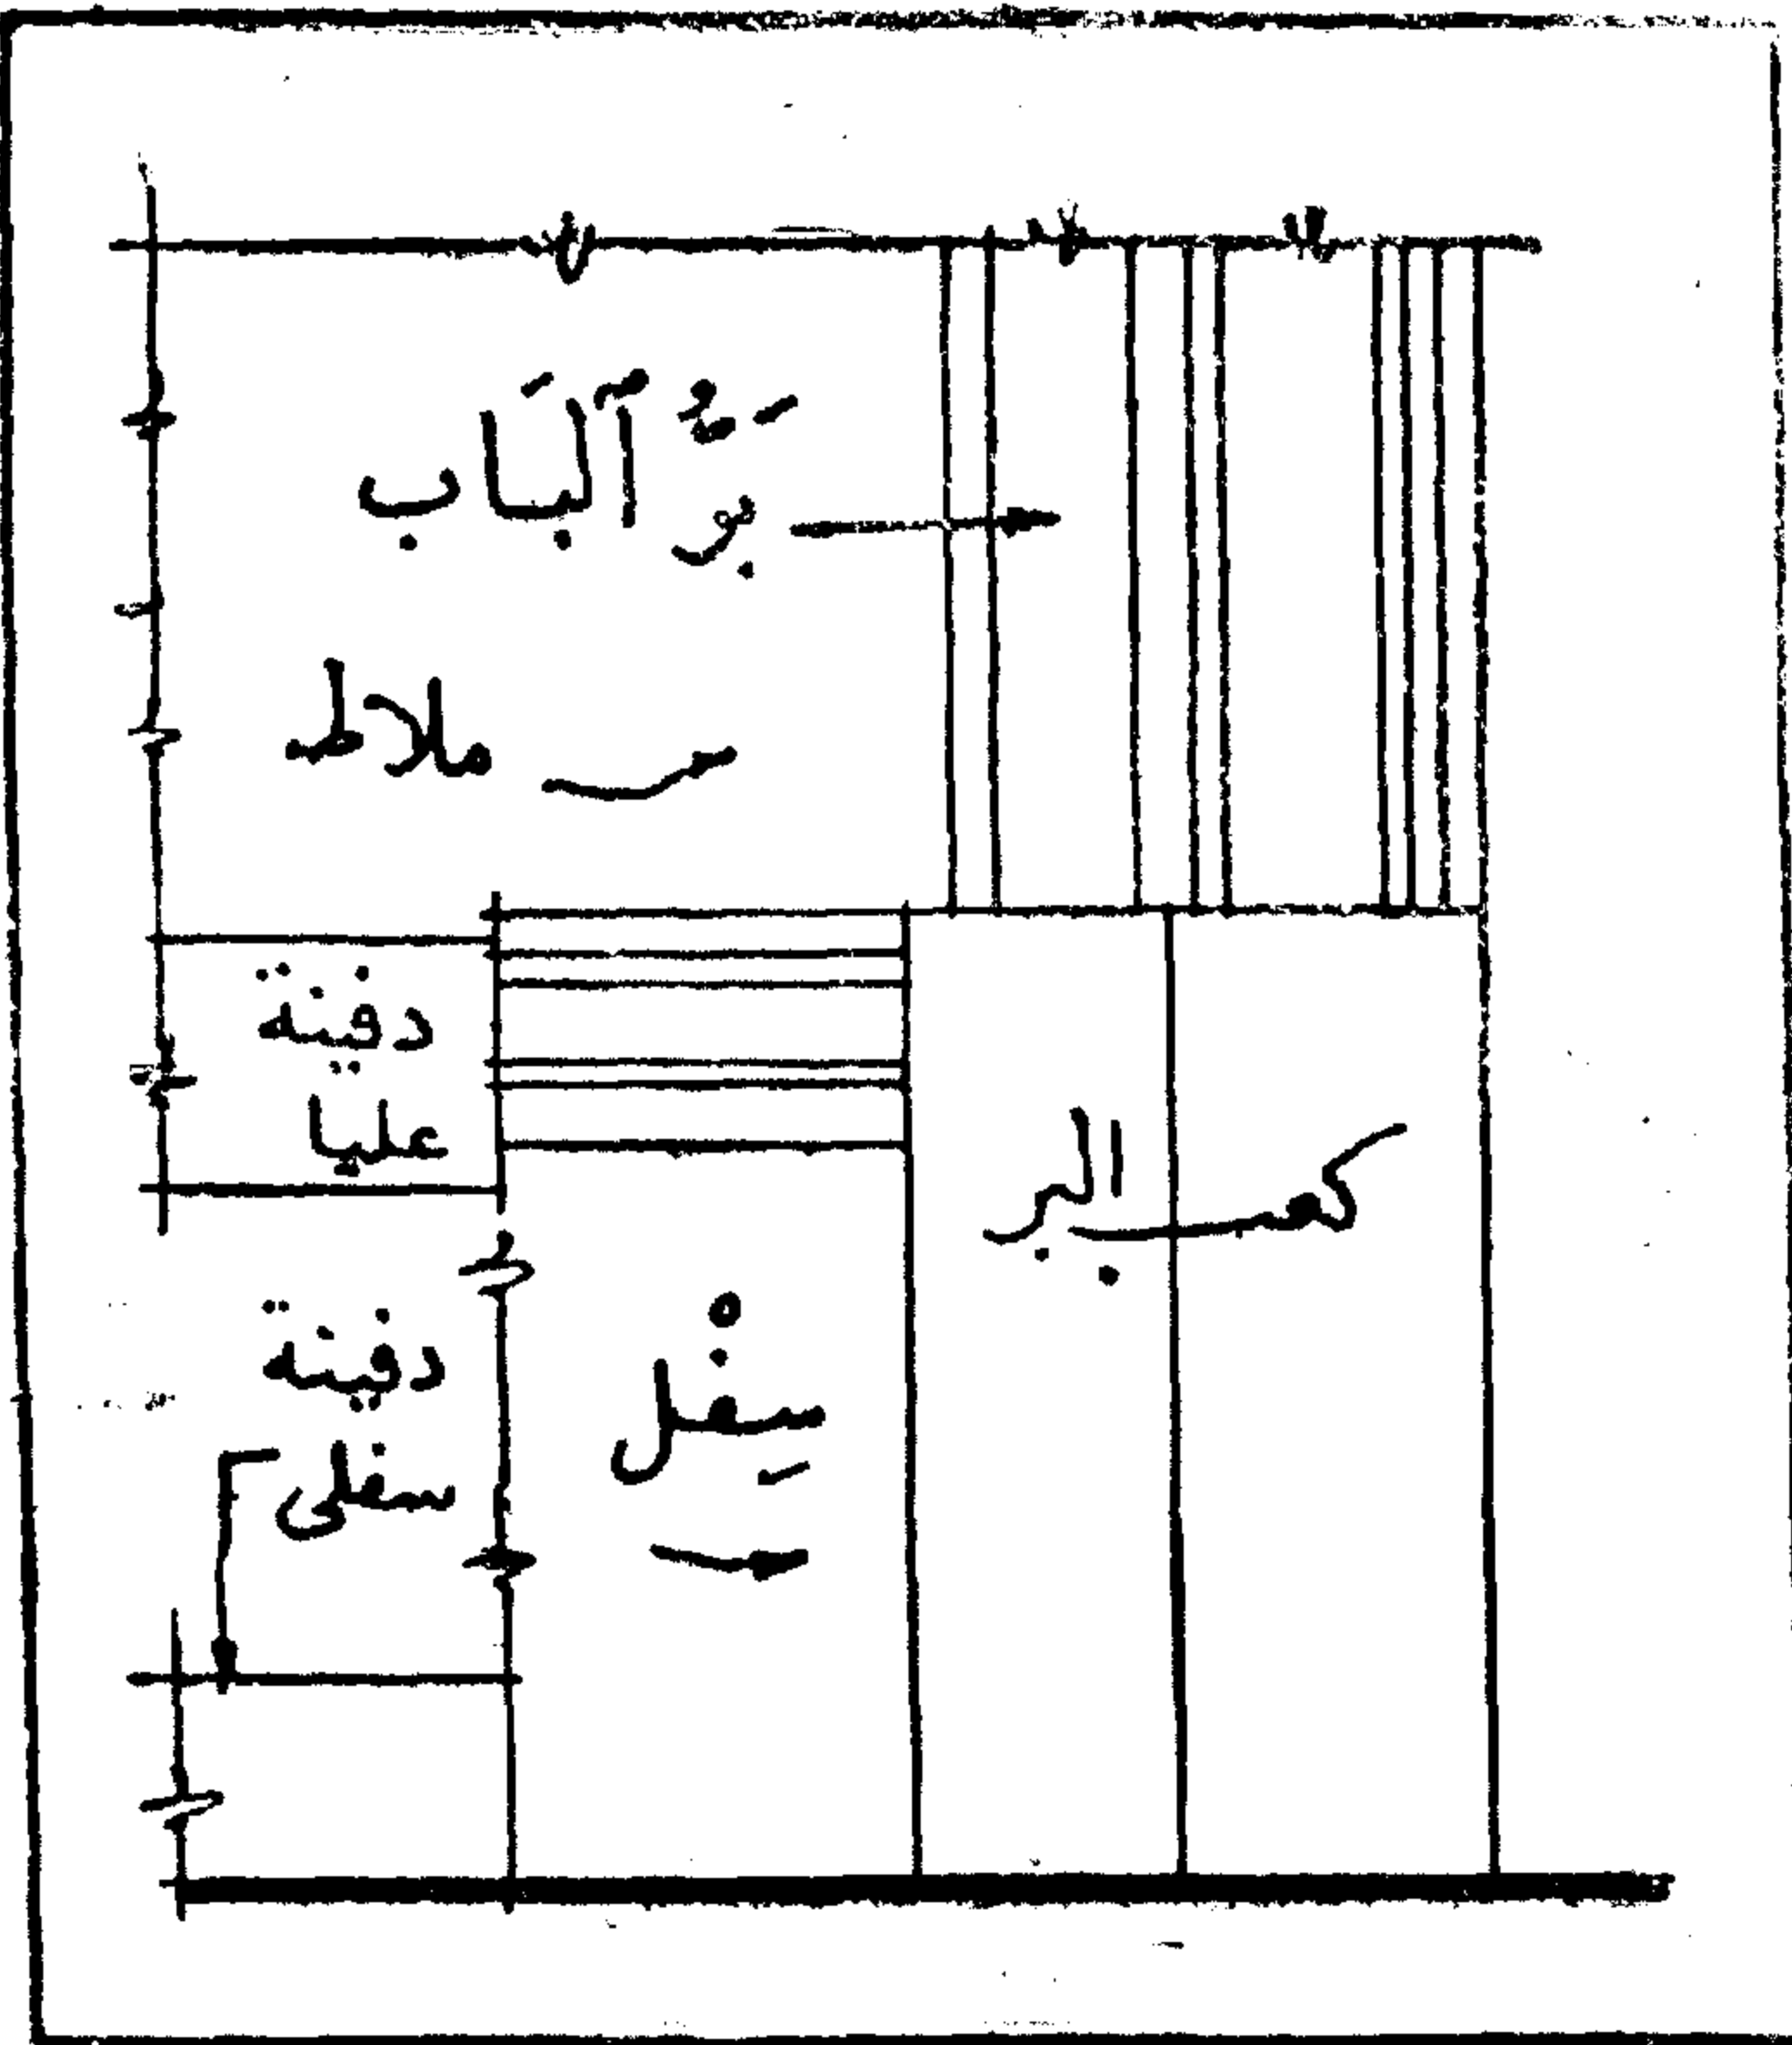 بر آلبَاب
ملاط
دفينة
عليا
كعب البر
دفينة
سفلى
سفل